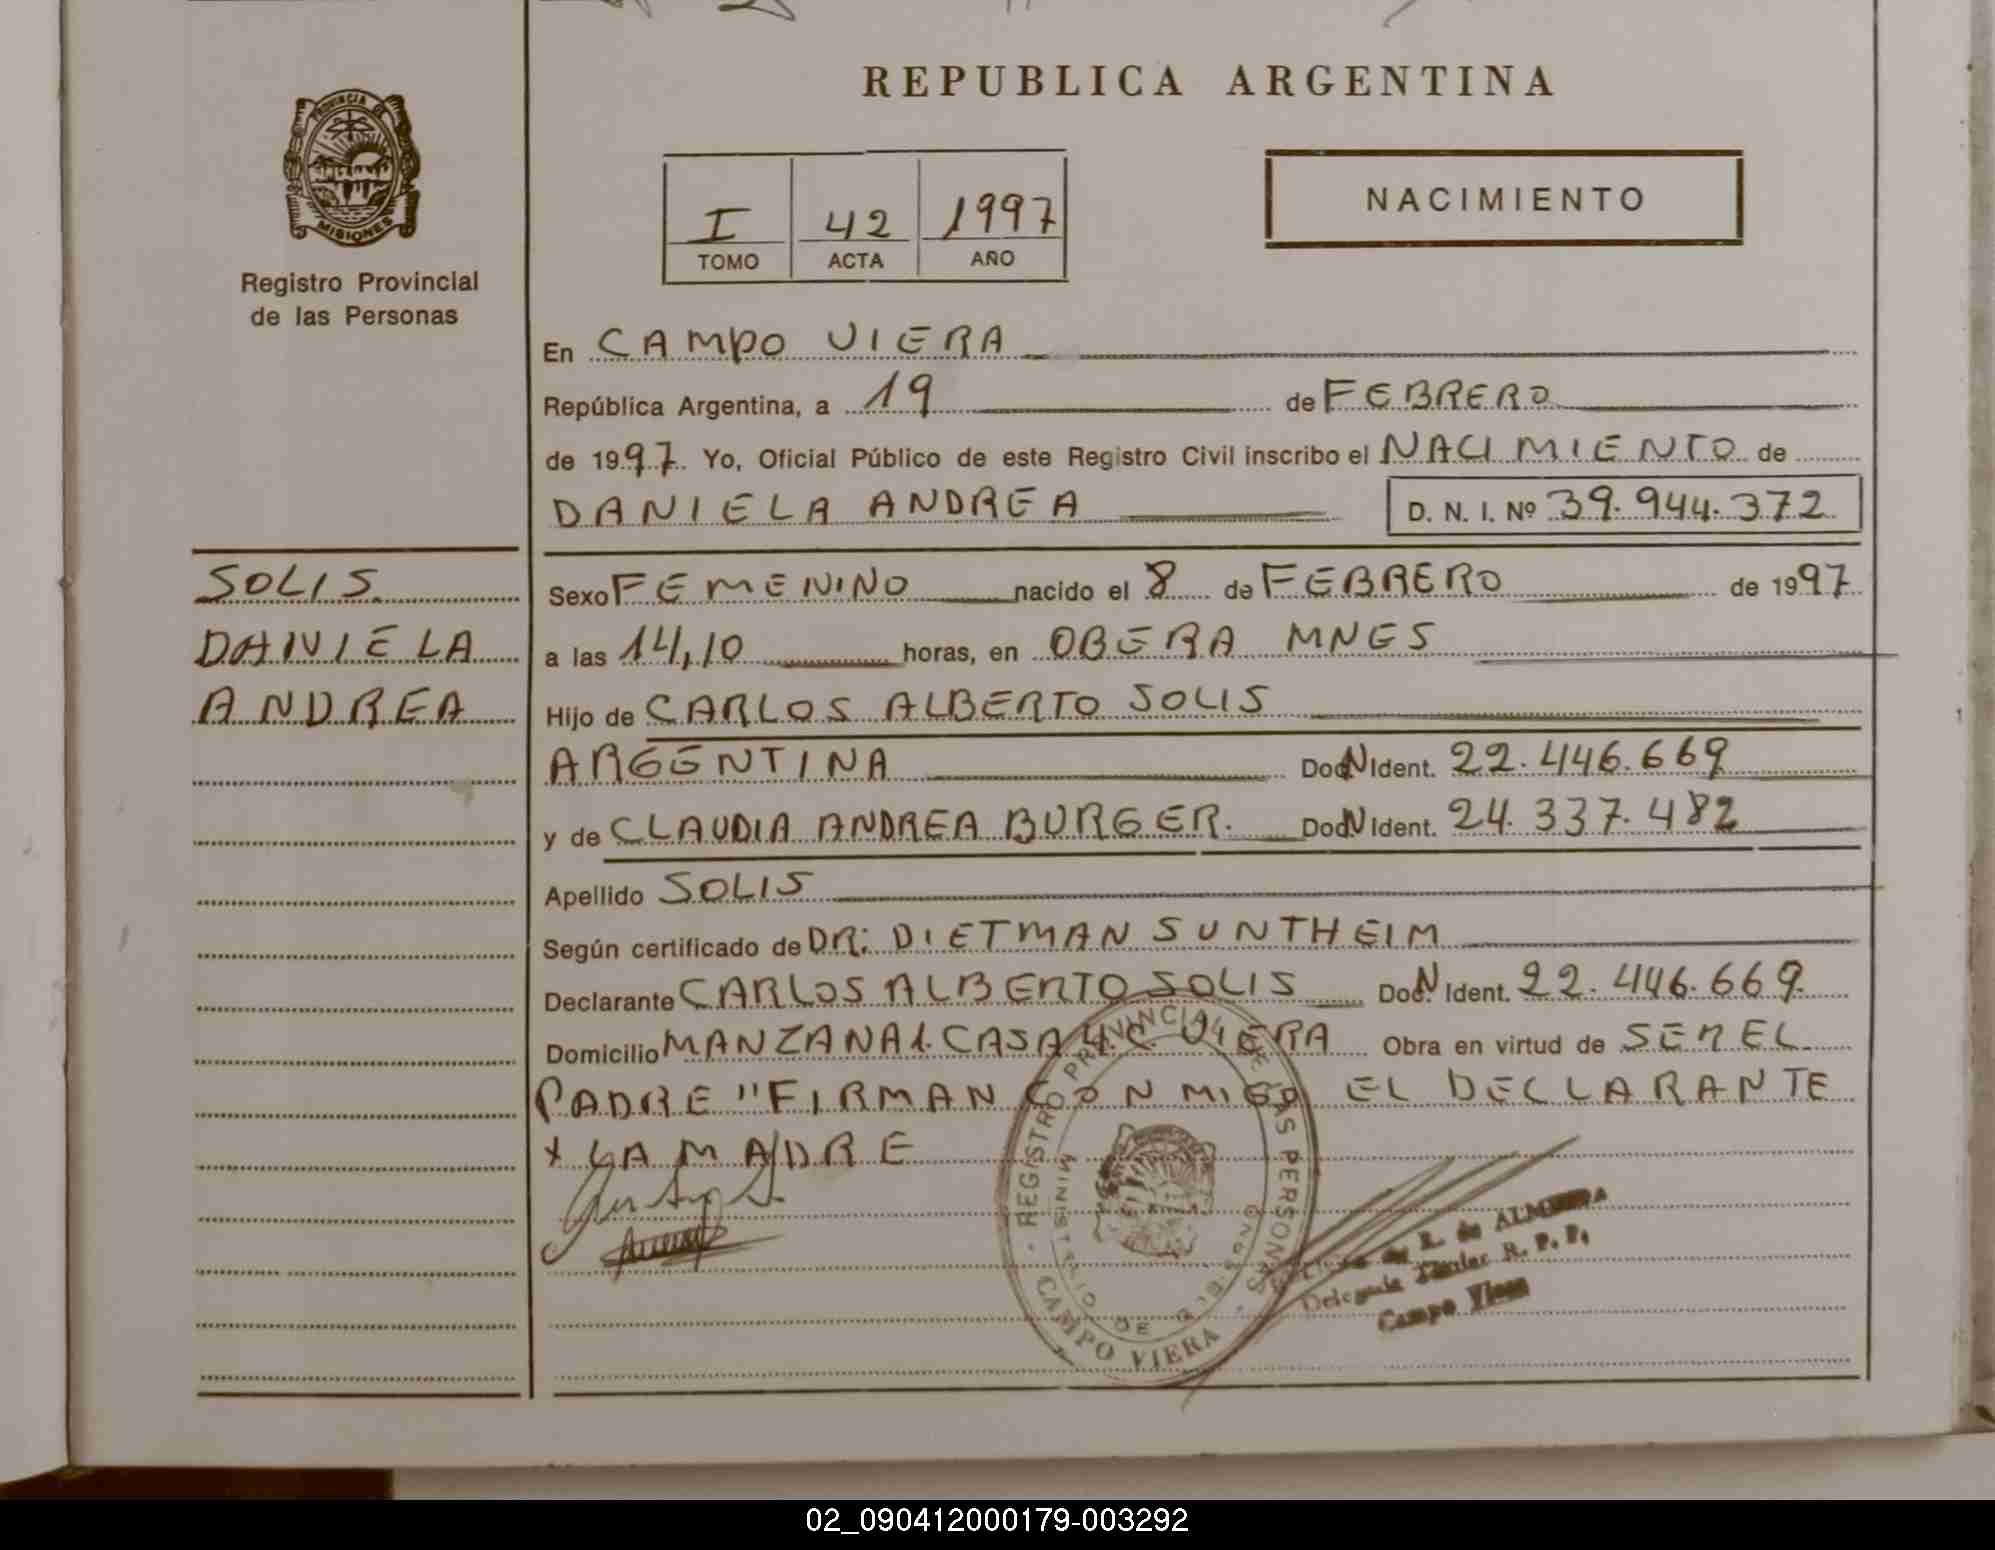 REPUBLICA ARGENTINA
PROVINCIA DE
MISIONES
Registro Provincial
de las Personas
I 42 1997
TOMO ACTA AÑO
NACIMIENTO
En CAMPO VIERA
República Argentina, a 19 de FEBRERO
de 1997. Yo, Oficial Público de este Registro Civil inscribo el NACIMIENTO de
DANIELA ANDREA D. N. I. Nº 39.944.372
SOLIS
DANIELA
ANDREA
Sexo FEMENINO nacido el 8 de FEBRERO de 1997
a las 14,10 horas, en OBERA MNES
Hijo de CARLOS ALBERTO SOLIS
ARGENTINA Doc N Ident. 22.446.669
y de CLAUDIA ANDREA BURGER. Doc N Ident. 24.337.482
Apellido SOLIS
Según certificado de DR: DIETMAN SUNTHEIM
Declarante CARLOS ALBERTO SOLIS Doc. N Ident. 22.446.669.
Domicilio MANZANA 1. CASA 4 C. VIERA Obra en virtud de SER EL
PADRE "FIRMAN CON MIGO EL DECLARANTE
Y LA MADRE
REGISTRO PROVINCIAL DE LAS PERSONAS
MINISTERIO DE
CAMPO VIERA
de R. de ALMEIDA
Delegada Titular R. P. P.
Campo Viera
02_090412000179-003292